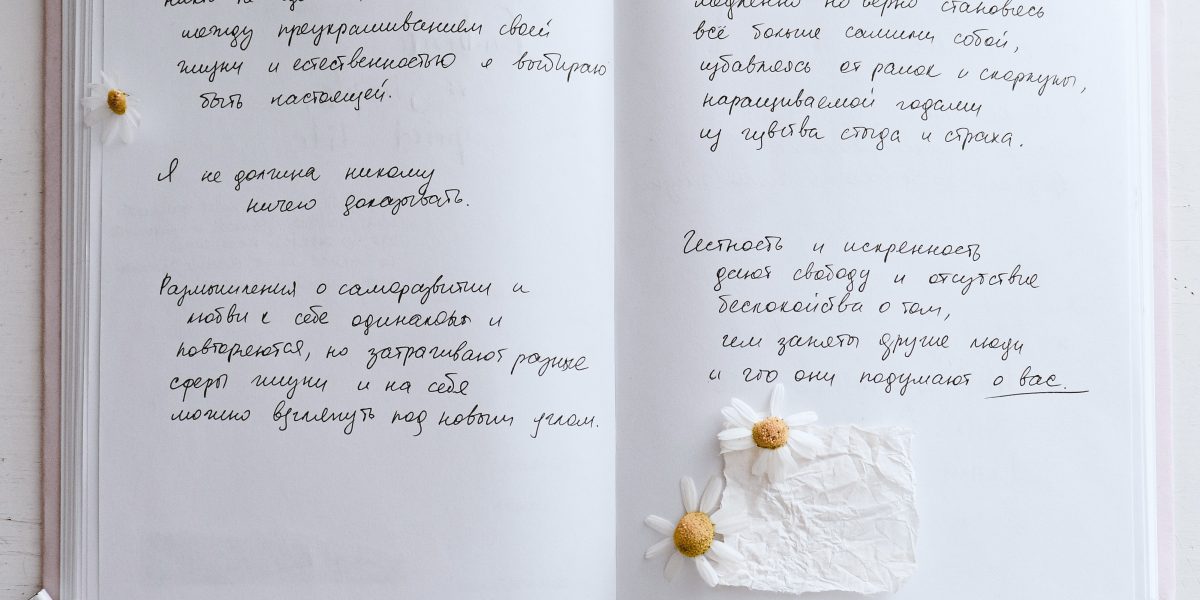 между преукрашиванием своей
жизни и естественностью я выбираю
быть настоящей.
Я не должна никому
ничего доказывать.
Размышления о саморазвитии и
любви к себе одинаковы и
повторяются, но затрагивают разные
сферы жизни и на себя
можно взглянуть под новым углом.
медленно но верно становясь
всё больше самими собой,
избавляясь от рамок и скорлупы,
наращиваемой годами
из чувства стыда и страха.
Честность и искренность
дают свободу и отсутствие
беспокойства о том,
чем заняты другие люди
и что они подумают о вас.